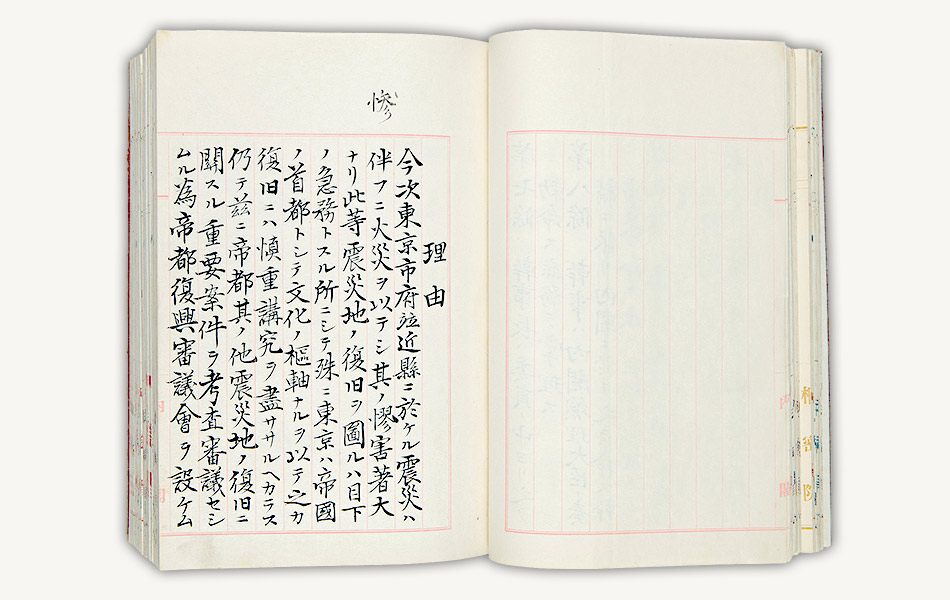 慘
理由
今次東京市府竝近縣ニ於ケル震災ハ
伴フニ火災ヲ以テシ其ノ慘害著大
ナリ此等震災地ノ復旧ヲ圖ルハ目下
ノ急務トスル所ニシテ殊ニ東京ハ帝國
ノ首都トシテ文化ノ樞軸ナルヲ以テ之カ
復旧ニハ慎重講究ヲ盡ササルヘカラス
仍テ茲ニ帝都其ノ他震災地ノ復旧ニ
關スル重要案件ヲ考査審議セシ
ムル為帝都復興審議會ヲ設ケム